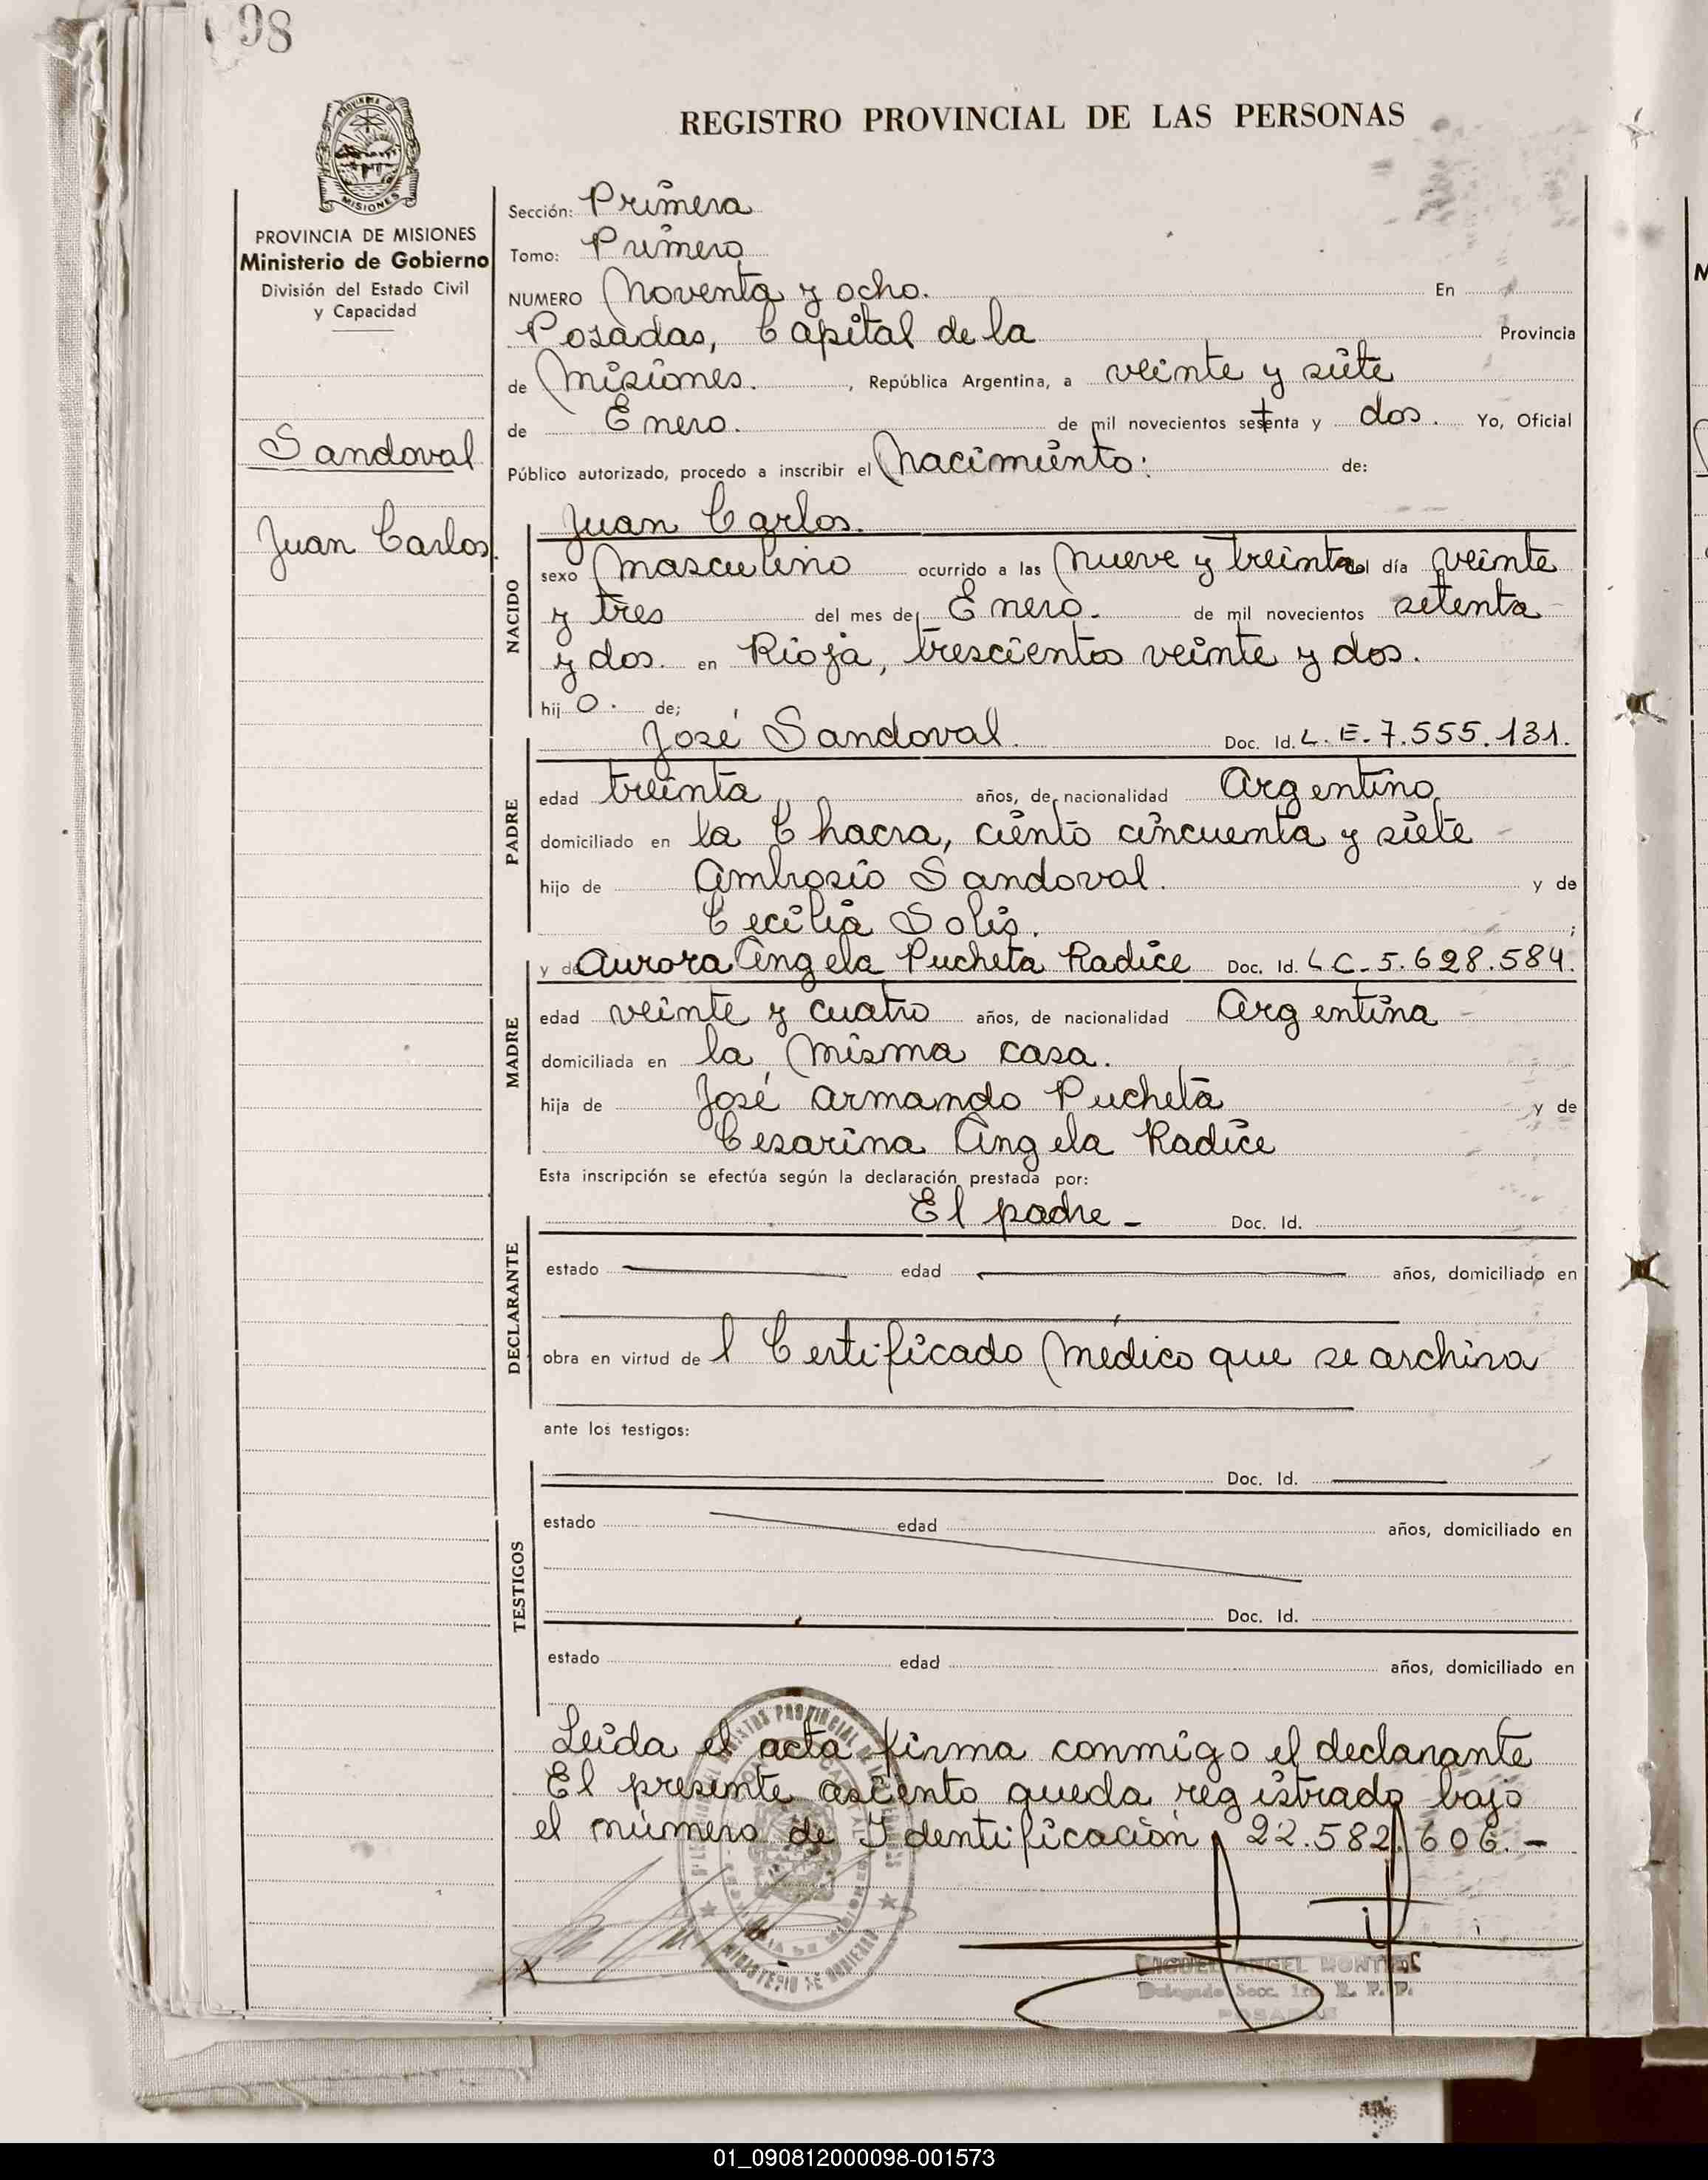 98
REGISTRO PROVINCIAL DE LAS PERSONAS
PROVINCIA DE MISIONES
Ministerio de Gobierno
División del Estado Civil
y Capacidad
Sandoval
Juan Carlos.
Sección: Primera
Tomo: Primero
NUMERO Noventa y ocho. En
Posadas, Capital de la Provincia
de Misiones. , República Argentina, a veinte y siete
de Enero. de mil novecientos setenta y dos. Yo, Oficial
Público autorizado, procedo a inscribir el Nacimiento: de:
Juan Carlos.
NACIDO
sexo Masculino ocurrido a las Nueve y treinta del día veinte
y tres del mes de Enero. de mil novecientos setenta
y dos. en Rioja, trescientos veinte y dos.
hij o. de;
PADRE
José Sandoval. Doc. Id. L. E. 7.555.131.
edad treinta años, de nacionalidad Argentino
domiciliado en la Chacra, ciento cincuenta y siete
hijo de Ambrosio Sandoval. y de
Cecilia Solis. ;
MADRE
y de Aurora Angela Pucheta Radice Doc. Id. L C. 5.628.584.
edad veinte y cuatro años, de nacionalidad Argentina
domiciliada en la Misma casa.
hija de José Armando Pucheta y de
Cesarina Angela Radice
Esta inscripción se efectúa según la declaración prestada por:
DECLARANTE
El padre - Doc. Id.
estado edad años, domiciliado en
obra en virtud de l Certificado Médico que se archiva
ante los testigos:
TESTIGOS
Doc. Id.
estado edad años, domiciliado en
Doc. Id.
estado edad años, domiciliado en
Leida el acta firma conmigo el declarante
El presente asiento queda registrado bajo
el número de Identificación 22.582.606.-
MINISTERIO DE GOBIERNO
MIGUEL ANGEL
Delegado Secc. 1ra R. P. P.
POSADAS
01_090812000098-001573